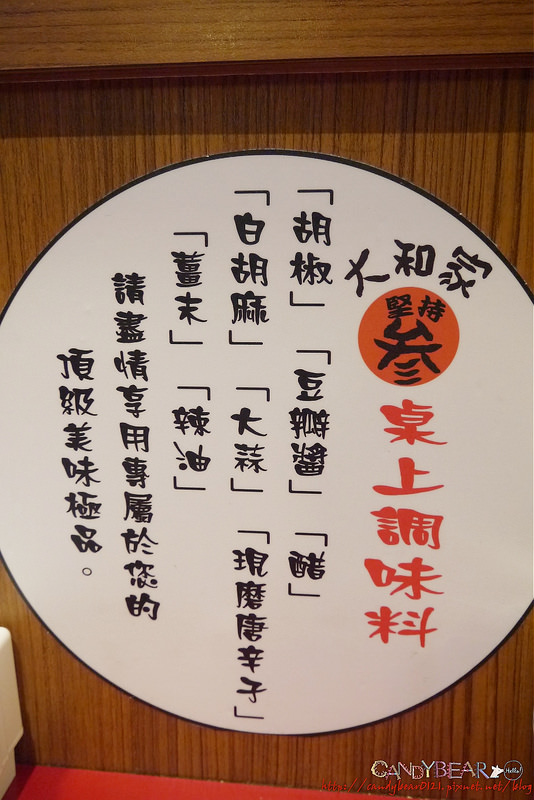 大和家
堅持
參
桌上調味料
「胡椒」「豆瓣醬」「醋」
「白胡麻」「大蒜」「現磨唐辛子」
「薑末」「辣油」
請盡情享用專屬於您的
頂級美味極品。
CANDYBEAR Hello!
http://candybear0121.pixnet.net/blog